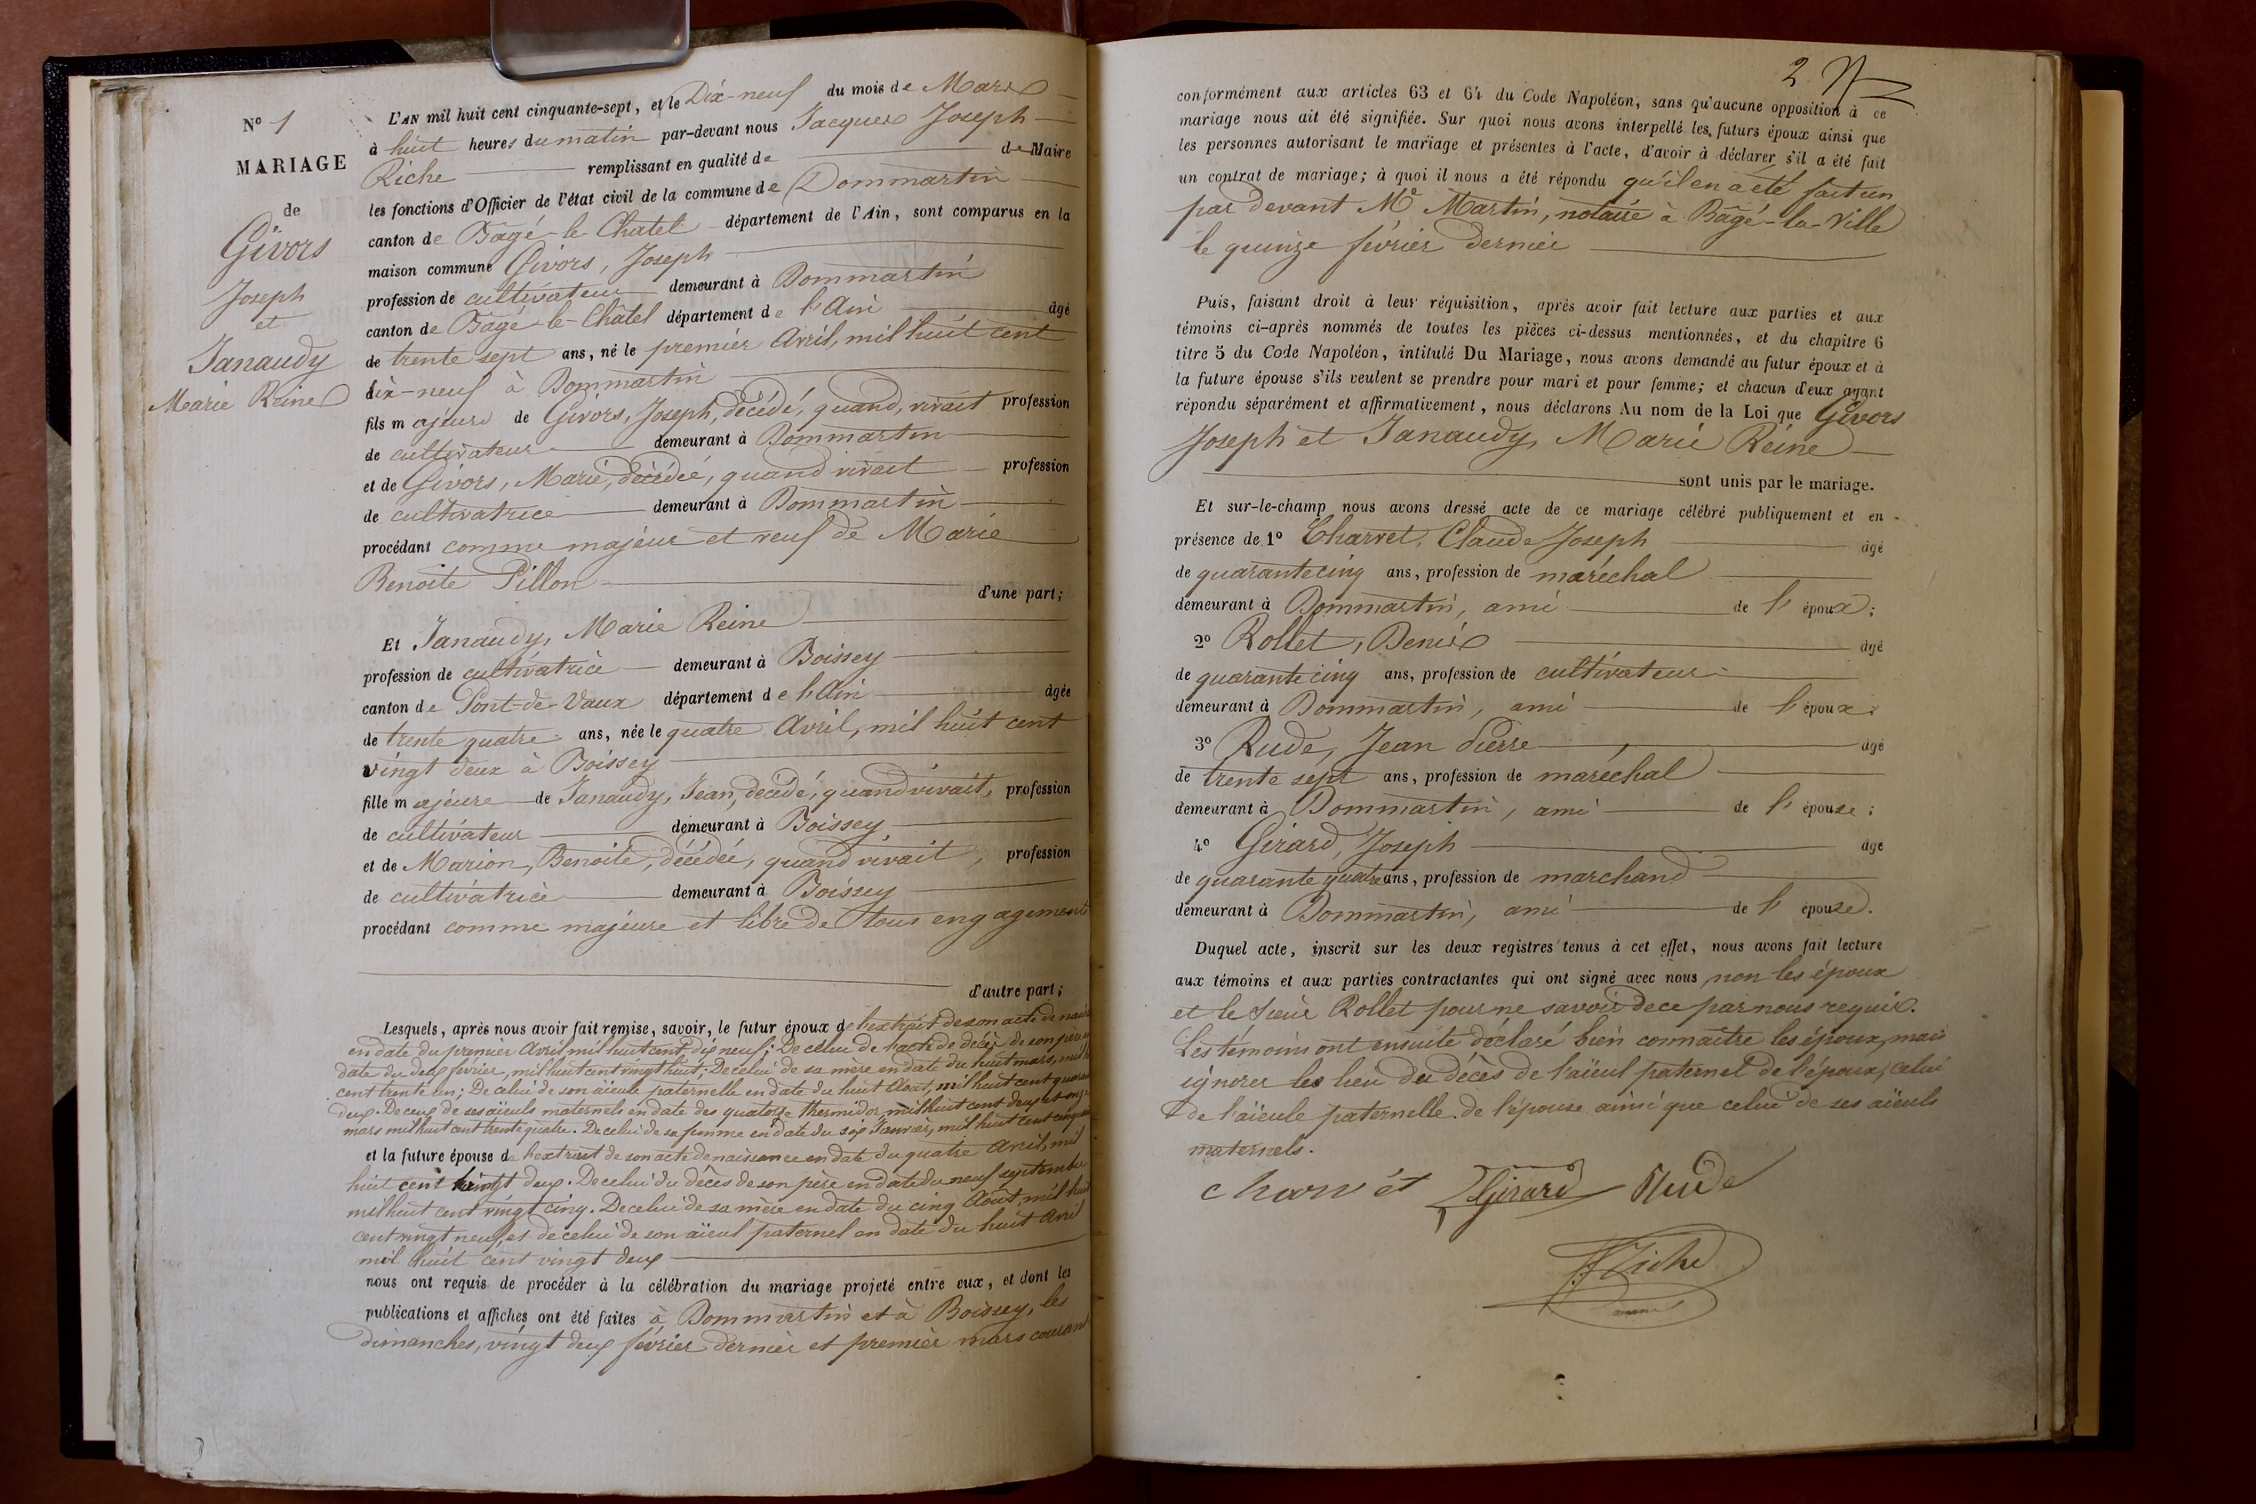 N° 1
MARIAGE
de
Givors
Joseph
et
Janaudy
Marie Reine
L'AN mil huit cent cinquante-sept, et le Dix-neuf du mois de Mars
à huit heures du matin par-devant nous Jacques Joseph
Riche remplissant en qualité de de Maire
les fonctions d'Officier de l'état civil de la commune de Dommartin
canton de Bagé-le-Chatel département de l'Ain, sont comparus en la
maison commune Givors, Joseph
profession de cultivateur demeurant à Dommartin
canton de Bagé-le-Châtel département de l'Ain âgé
de trente sept ans, né le premier Avril, mil huit cent
dix-neuf à Dommartin
fils majeur de Givors, Joseph, décédé, quand vivait profession
de cultivateur demeurant à Dommartin
et de Givors, Marie, décédée, quand vivait profession
de cultivatrice demeurant à Dommartin
procédant comme majeur et veuf de Marie
Benoite Pillon
d'une part;
Et Janaudy, Marie Reine
profession de cultivatrice demeurant à Boissey
canton de Pont-de-Vaux département de l'Ain âgée
de trente quatre ans, née le quatre Avril, mil huit cent
vingt deux à Boissey
fille majeure de Janaudy, Jean, décédé, quand vivait, profession
de cultivateur demeurant à Boissey,
et de Marion, Benoite, décédée, quand vivait, profession
de cultivatrice demeurant à Boissey
procédant comme majeure et libre de tous engagements
d'autre part;
Lesquels, après nous avoir fait remise, savoir, le futur époux de l'extrait de son acte de
en date du premier Avril mil huit cent dix neuf; De celui de l'acte de décès de son père en
date du deux février, mil huit cent vingt huit; De celui de sa mère en date du huit mars, mil
cent trente un; De celui de son aïeule paternelle en date du huit Août, mil huit cent
deux. De ceux de ses aïeuls maternels en date des quatorze thermidor mil huit cent deux et
mars mil huit cent trente quatre. De celui de sa femme en date du six Janvier, mil huit cent
et la future épouse de l'extrait de son acte de naissance en date du quatre Avril, mil
huit cent vingt deux. De celui du décès de son père en date du neuf septembre
mil huit cent vingt cinq. De celui de sa mère en date du cinq Août, mil huit
cent vingt neuf, et de celui de son aïeul paternel en date du huit Avril
mil huit cent vingt deux
nous ont requis de procéder à la célébration du mariage projeté entre eux, et dont les
publications et affiches ont été faites à Dommartin et à Boissey, les
dimanches, vingt deux février dernier et premier mars courant
2
conformément aux articles 63 et 64 du Code Napoléon, sans qu'aucune opposition à ce
mariage nous ait été signifiée. Sur quoi nous avons interpellé les futurs époux ainsi que
les personnes autorisant le mariage et présentes à l'acte, d'avoir à déclarer s'il a été fait
un contrat de mariage; à quoi il nous a été répondu qu'il en a été fait un
par devant Me Martin, notaire à Bâgé-la-Ville
le quinze février dernier
Puis, faisant droit à leur réquisition, après avoir fait lecture aux parties et aux
témoins ci-après nommés de toutes les pièces ci-dessus mentionnées, et du chapitre 6
titre 5 du Code Napoléon, intitulé Du Mariage, nous avons demandé au futur époux et à
la future épouse s'ils veulent se prendre pour mari et pour femme; et chacun d'eux ayant
répondu séparément et affirmativement, nous déclarons Au nom de la Loi que Givors
Joseph et Janaudy, Marie Reine
sont unis par le mariage.
Et sur-le-champ nous avons dressé acte de ce mariage célébré publiquement et en
présence de 1° Charvet, Claude Joseph âgé
de quarante cinq ans, profession de maréchal
demeurant à Dommartin, ami de l'époux;
2° Rollet, Denis âgé
de quarante cinq ans, profession de cultivateur
demeurant à Dommartin, ami de l'époux.
3° Rude, Jean Pierre âgé
de trente sept ans, profession de maréchal
demeurant à Dommartin, ami de l'épouse;
4° Girard, Joseph âgé
de quarante quatre ans, profession de marchand
demeurant à Dommartin, ami de l'épouse.
Duquel acte, inscrit sur les deux registres tenus à cet effet, nous avons fait lecture
aux témoins et aux parties contractantes qui ont signé avec nous, non les époux
et le sieur Rollet pour ne savoir de ce par nous requis.
Les témoins ont ensuite déclaré bien connaître les époux, mais
ignorer les lieu du décès de l'aïeul paternel de l'époux, celui
de l'aïeule paternelle de l'épouse ainsi que celui de ses aïeuls
maternels.
charvét Girard Rude
Riche
maire